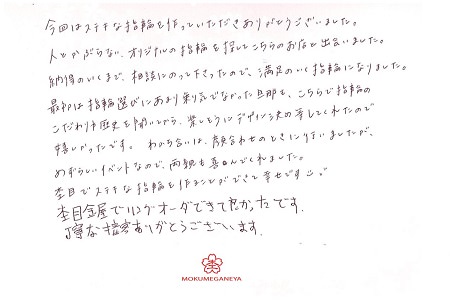 今回はステキな指輪を作っていただきありがとうございました。
人とかぶらない、オリジナルの指輪を探してこちらのお店と出会いました。
納得のいくまで、相談にのって下さったので、満足のいく指輪になりました。
最初は指輪選びにあまり乗り気でなかった旦那も、こちらで指輪の
こだわりや歴史を聞いてから、楽しそうにデザイン決め等してくれたので
嬉しかったです。わかち合いは、顔合わせのときに行いましたが、
めずらしいイベントなので、両親も喜んでくれました。
杢目でステキな指輪を作ることができて幸せです
杢目金屋でリングオーダーできてよかったです。
丁寧な接客ありがとうございます。
MOKUMEGANEYA